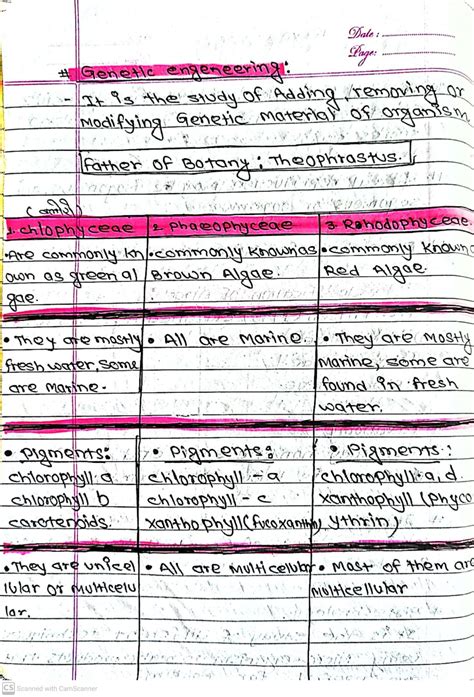 Date:
Page:
# Genetic engeneering:
- It is the study of Adding, removing or
Modifying Genetic Material of organism
Father of Botany: Theophrastus.
1. Chlophyceae
2. Phaeophyceae
3. Rohodophyceae
•Are commonly kn
own as green al
gae.
•commonly known as
Brown Algae.
•commonly known
Red Algae.
• They are mostly
fresh water, some
are Marine.
• All are Marine.
• They are Mostly
Marine, some are
found in fresh
water.
• Pigments:
chlorophyll a
chlorophyll b
carotenoids.
• Pigments:
chlorophyll -a
chlorophyll - c
xanthophyll (fucoxanthin)
• Pigments:
chlorophyll a, d
xanthophyll (phyco
ythrin)
• They are unicel
lular or multicelu
lar.
• All are multicelular
• Most of them are
Multicellular
CS Scanned with CamScanner